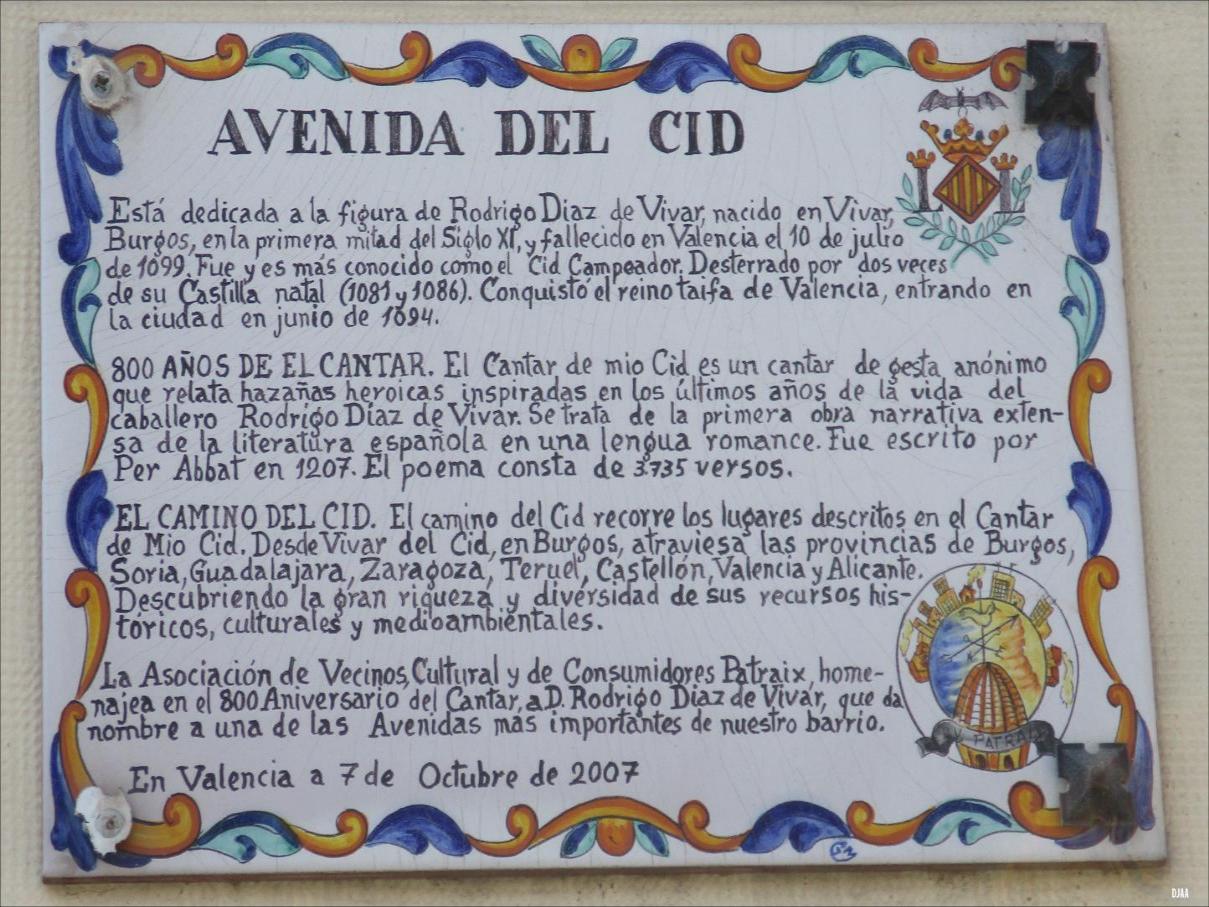 AVENIDA DEL CID
Está dedicada a la figura de Rodrigo Diaz de Vivar, nacido en Vivar,
Burgos, en la primera mitad del Siglo XI, y fallecido en Valencia el 10 de julio
de 1099. Fue y es más conocido como el Cid Campeador. Desterrado por dos veces
de su Castilla natal (1081 y 1086). Conquistó el reino taifa de Valencia, entrando en
la ciudad en junio de 1094.
800 AÑOS DE EL CANTAR. El Cantar de mio Cid es un cantar de gesta anónimo
que relata hazañas heroicas inspiradas en los últimos años de la vida del
caballero Rodrigo Díaz de Vivar. Se trata de la primera obra narrativa exten-
sa de la literatura española en una lengua romance. Fue escrito por
Per Abbat en 1207. El poema consta de 3.735 versos.
EL CAMINO DEL CID. El camino del Cid recorre los lugares descritos en el Cantar
de Mio Cid. Desde Vivar del Cid, en Burgos, atraviesa las provincias de Burgos,
Soria, Guadalajara, Zaragoza, Teruel, Castellón, Valencia y Alicante.
Descubriendo la gran riqueza y diversidad de sus recursos his-
tóricos, culturales y medioambientales.
La Asociación de Vecinos, Cultural y de Consumidores Patraix, home-
najea en el 800 Aniversario del Cantar, a D. Rodrigo Diaz de Vivar, que da
nombre a una de las Avenidas mas importantes de nuestro barrio.
V. PATRAIX
En Valencia a 7 de Octubre de 2007
DJAA